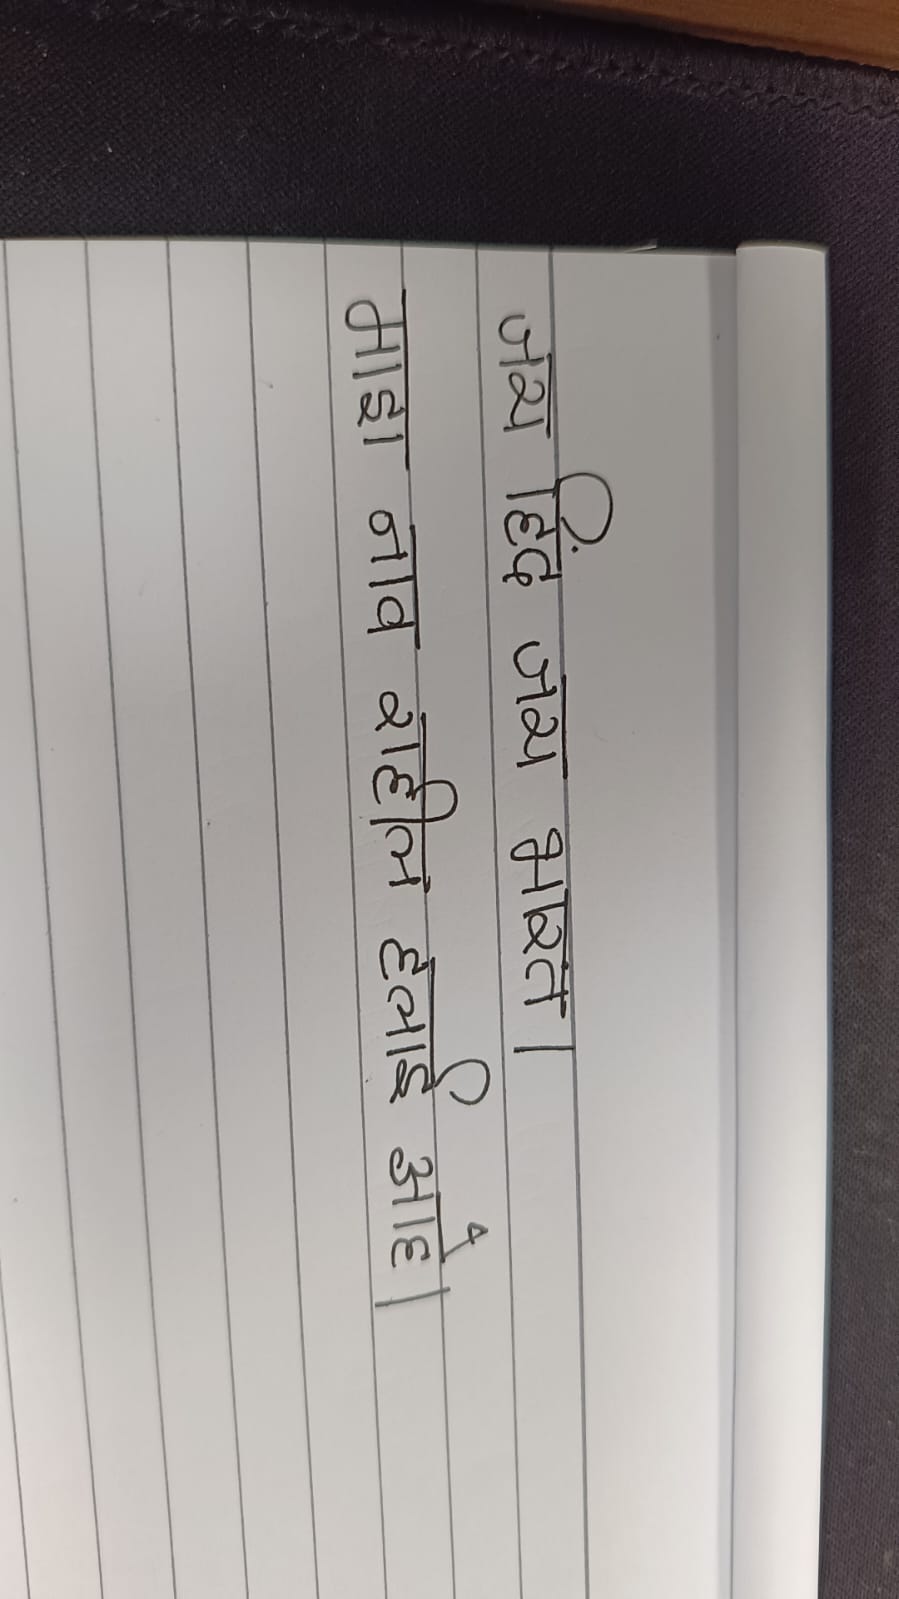 जय हिंद जय भारत।
माझा नाव राहील हलाई आहे।